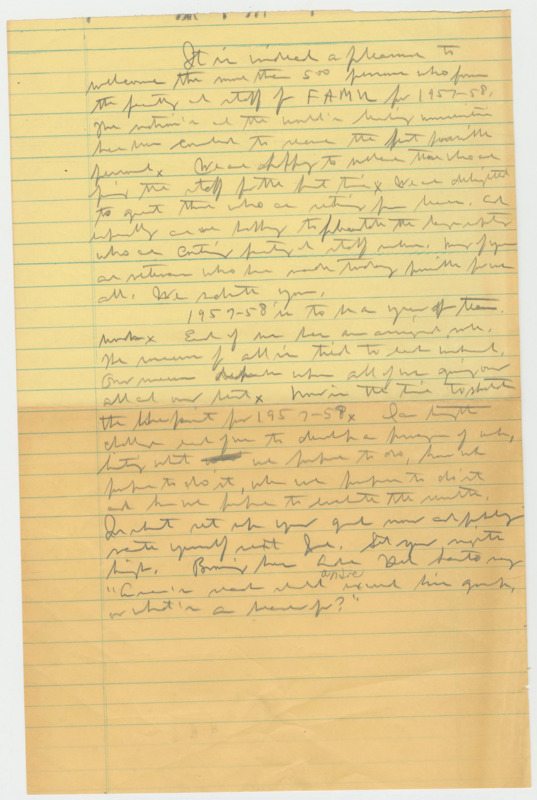 It is indeed a pleasure to
welcome the more than 500 persons who form
the faculty and staff of FAMU for 1957-58.
The nation's and the world's leading universities
have been combed to secure the best possible
personnel x We are happy to welcome those who are
joining the staff for the first time x We are delighted
to greet those who are returning from leave. And
who are continuing faculty and staff members. Many of you
are veterans who have made today possible for us
all. We salute you.
1957-58 is to be a year of team
work x Each of us has an assigned role.
The success of all is tied to each individual.
Our success depends upon all of us giving our
all and our best x Now is the time to
the blueprint for 1957-58 x I
challenge each of you to develop a program of work,
listing what we propose to do, how we
propose to do it, when we propose to do it
and how we propose to evaluate the results.
In short set up your goals now and
rate yourself next June. Set your sights
high. Browning's
"A man's reach should exceed his grasp,
or what's a heaven for?"